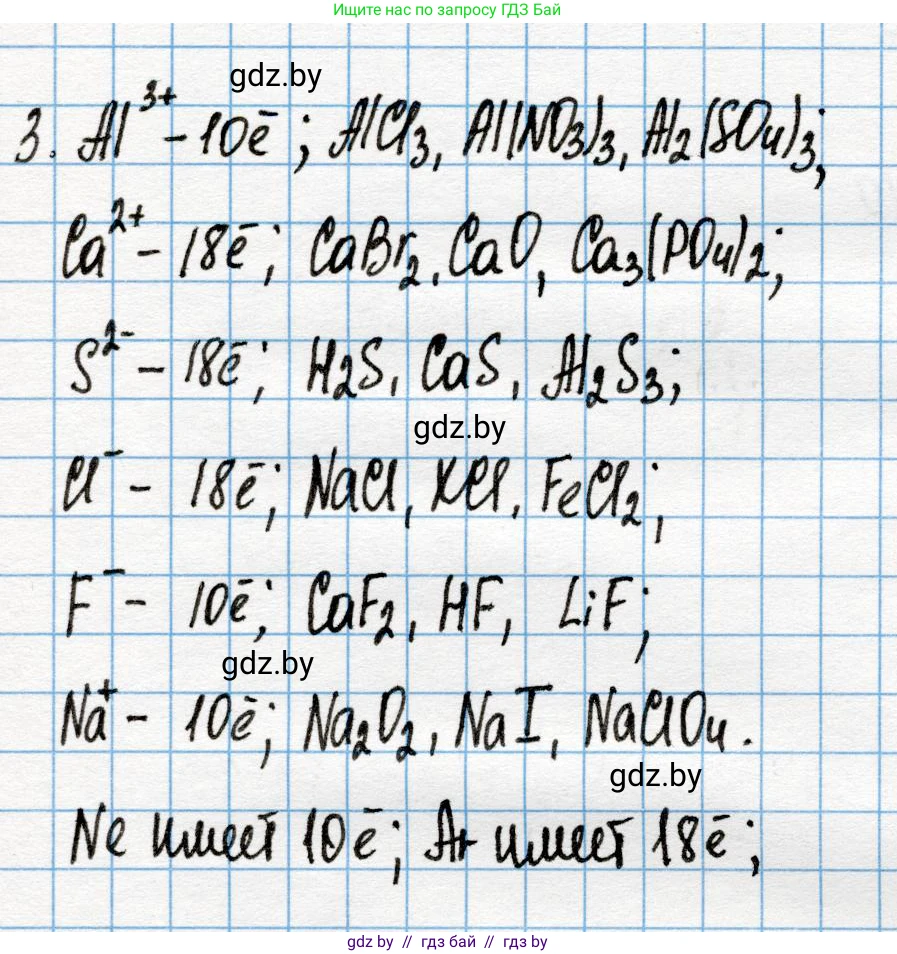 Ищите нас по запросу ГДЗ Бай
gdz.by
3. Al³⁺ - 10ē; AlCl₃, Al(NO₃)₃, Al₂(SO₄)₃;
Ca²⁺ - 18ē; CaBr₂, CaO, Ca₃(PO₄)₂;
S²⁻ - 18ē; H₂S, CaS, Al₂S₃;
gdz.by
Cl⁻ - 18ē; NaCl, KCl, FeCl₂;
F⁻ - 10ē; CaF₂, HF, LiF;
gdz.by
Na⁺ - 10ē; Na₂O₂, NaI, NaClO₄.
gdz.by
Ne имеет 10ē; Ar имеет 18ē;
gdz.by // гдз бай // гдз by